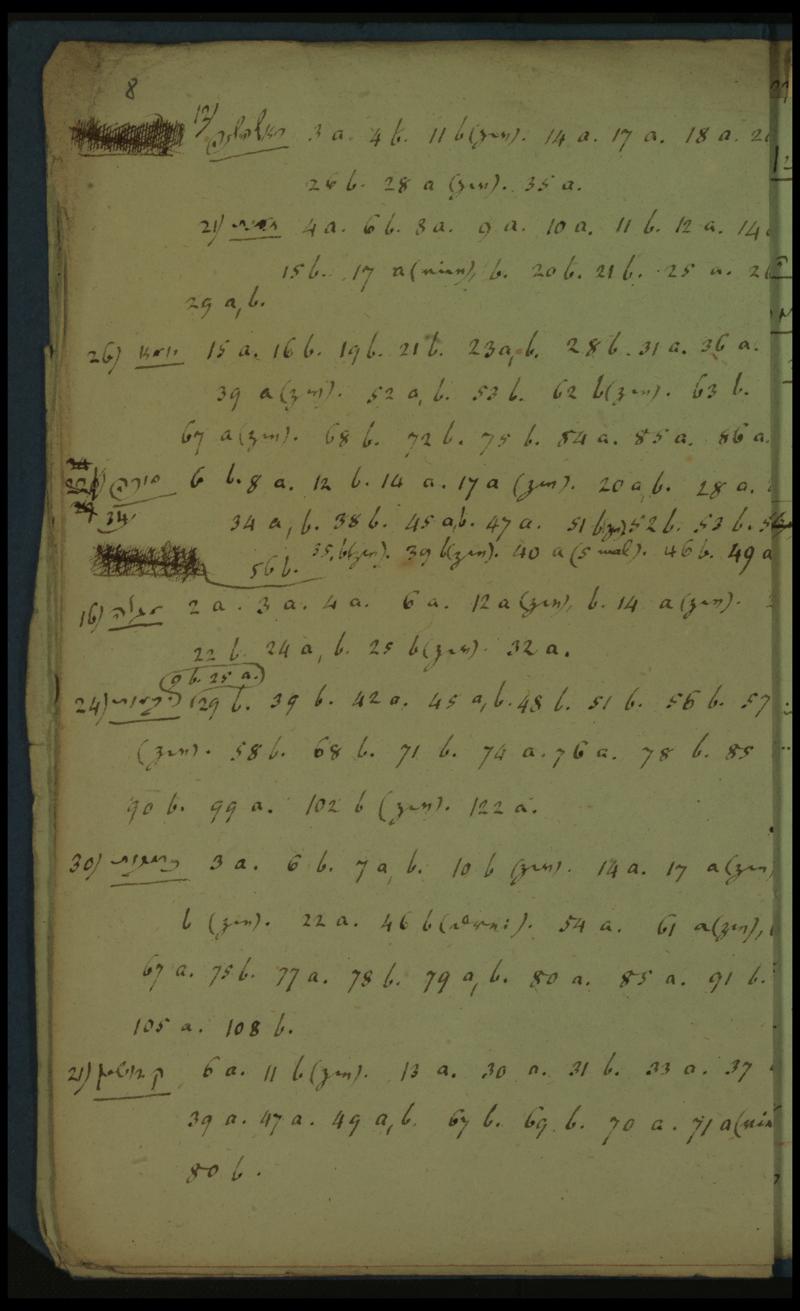 8
12) 3 a. 4 b. 11 b (zen). 14 a. 17 a. 18 a.
26 b. 28 a (zen). 35 a.
21) 4 a. 6 b. 8 a. 9 a. 10 a. 11 b. 12 a. 14
15 b. 17 a b. 20 b. 21 b. 25 a.
29 a, b.
26) יומא 15 a. 16 b. 19 b. 21 b. 23 a, b. 28 b. 31 a. 36 a.
39 a (zen). 52 a, b. 53 b. 62 b (zen). 63 b.
67 a (zen). 68 b. 72 b. 75 b. 84 a. 85 a. 86 a.
סוכה 6 b. 8 a. 12 b. 14 a. 17 a (zen). 20 a, b. 28 a.
34 34 a, b. 38 b. 45 a, b. 47 a. 51 b (zen) 52 b. 53 b.
56 b. 35, b (zen). 39 b (zen). 40 a (5 mal). 46 b. 49 a
16) מגלה 2 a. 3 a. 4 a. 6 a. 12 a (zen), b. 14 a (zen).
22 b. 24 a, b. 25 b (zen). 32 a.
9 b. 25 a.
24) 29 b. 39 b. 42 a. 45 a, b. 48 b. 51 b. 56 b. 57
(zen). 58 b. 68 b. 71 b. 74 a. 76 a. 78 b. 85
90 b. 99 a. 102 b (zen). 122 a.
30) 3 a. 6 b. 7 a, b. 10 b (zen). 14 a. 17 a (zen)
b (zen). 22 a. 46 b 54 a. 61 a (zen),
67 a. 75 b. 77 a. 78 b. 79 a, b. 80 a. 85 a. 91 b.
105 a. 108 b.
21) קדושין 6 a. 11 b (zen). 13 a. 30 a. 31 b. 33 a. 37
39 a. 47 a. 49 a, b. 67 b. 69 b. 70 a. 71 a
80 b.